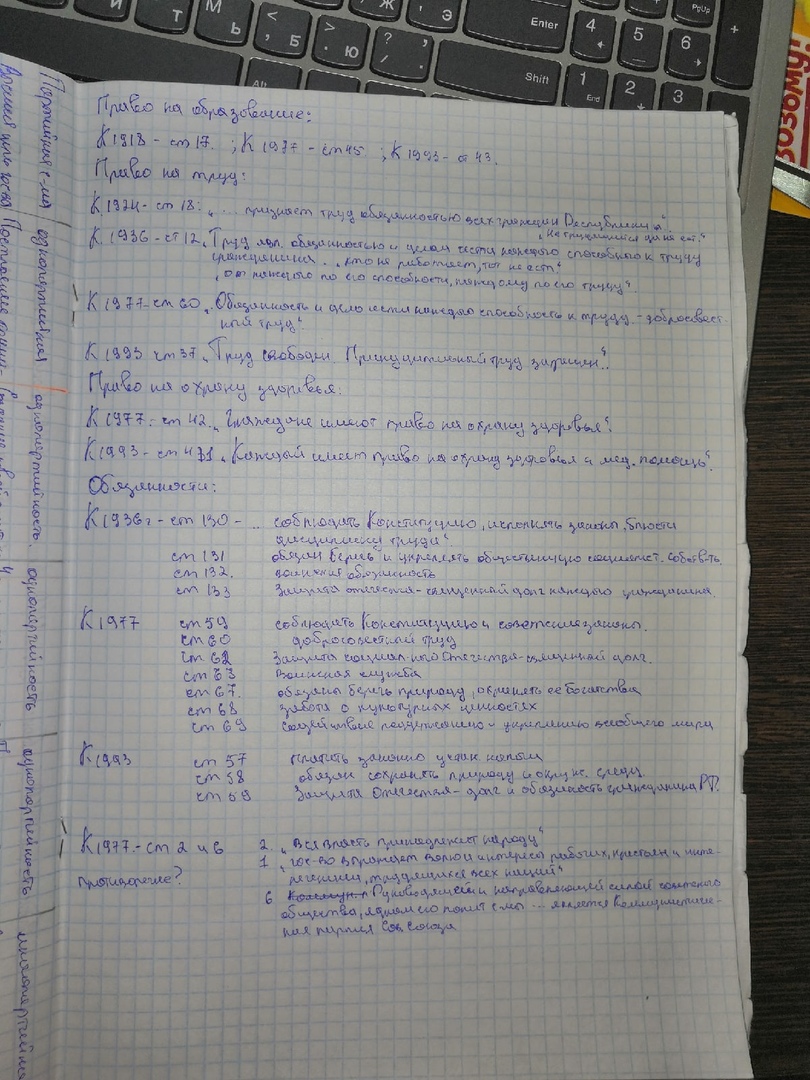 И Т Ь Б Ю ? / Ж Э Enter Shift Alt 4 5 6 1 End 2 3 PgUp +
Право на образование:
К 1918 - ст 17. ; К 1937 - ст 45 ; К 1993 - ст 43.
Право на труд:
К 1924 - ст 18: „... признает труд обязанностью всех граждан Республики"
„Не трудящийся да не ест."
К 1936 - ст 12 „Труд явл. обязанностью и делом чести каждого способного к труду
гражданина. „кто не работает, тот не ест"
„от каждого по его способности, каждому по его труду".
К 1977 - ст 60 „Обязанность и дело чести каждого способность к труду - добросовест.
ный труд".
К 1993 ст 37 „Труд свободен Принудительный труд запрещен"
Право на охрану здоровья:
К 1977 - ст 42 „Граждане имеют право на охрану здоровья".
К 1993 - ст 41 „Каждый имеет право на охрану здоровья и мед. помощь".
Обязанности:
К 1936г - ст 130 - ... соблюдать Конституцию, исполнять законы, блюсти
дисциплину труда"
ст 131 обязан беречь и укреплять общественную социалист. собств-ть
ст 132. воинская обязанность
ст 133 Защита отечества - священный долг каждого гражданина.
К 1977 ст 59 соблюдать Конституцию и советские законы.
ст 60 добросовестный труд
ст 62 Защита социал-ного Отечества - священный долг.
ст 63 Воинская служба
ст 67. обязаны беречь природу, охранять ее богатства
ст 68 забота о культурных ценностях
ст 69 содействие поддержанию и укреплению всеобщего мира
К 1993 ст 57 платить законно устан налоги
ст 58 обязан сохранять природу и окруж. среду
ст 59 Защита Отечества - долг и обязаность гражданина РФ.
К 1977. - ст 2 и 6 2. „Вся власть принадлежит народу"
1 „гос-во выражает волю и интересы рабочих, крестьян и инте-
противоречие? лигенции, трудящихся всех наций"
6 Руководящей и направляющей силой советского
общества, ядром его полит с-мы ... является Коммунистичес-
кая партия Сов Союза
Партийная с-ма однопартийная однопартийность. однопартийность однопартийность многопартийная